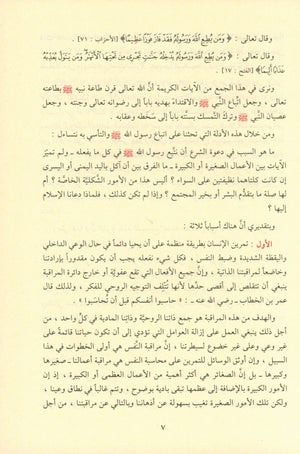 وقال تعالى : ﴿ وَمَن يُطِعِ ٱللَّهَ وَرَسُولَهُۥ فَقَدْ فَازَ فَوْزًا عَظِيمًا﴾ [الأحزاب : ٧١] .
وقال تعالى : ﴿ وَمَن يُطِعِ ٱللَّهَ وَرَسُولَهُۥ يُدْخِلْهُ جَنَّـٰتٍ تَجْرِى مِن تَحْتِهَا ٱلْأَنْهَـٰرُ ۖ وَمَن يَتَوَلَّ يُعَذِّبْهُ
عَذَابًا أَلِيمًا﴾ [الفتح : ١٧] .
ونرى في هذا الجمع من الآيات الكريمة أنَّ الله تعالى قرن طاعة نبيه ﷺ بطاعته
تعالى ، وجعل اتِّباع النَّبي ﷺ والاقتداء بهديه باباً إلى رضوانه تعالى وجنته ، وجعل
عصيان النَّبي ﷺ وتركَ التَّمسك بسنَّته باباً إلى سَخَطه وعقابه .
ومن خلال هذه الأدلة التي تحثنا على اتباع رسول الله ﷺ والتأسي به نتساءل :
ما هو السبب في دعوة الشرع أن نتَّبع رسول الله ﷺ في كل ما يفعله ـ ولم تميّز
الآيات بين الأعمال الصغيرة أو الكبيرة ـ ما الفرق بين أن أكل باليد اليمنى أو اليسرى
إن كانت كلتاهما نظيفتين على السواء ؟ أليس هذا من الأمور الشَّكليَّة الخاصَّة ؟ أم
لها صلة ما بتقدُّم البشر أو بخير المجتمع ؟ وإذا لم تكن كذلك ، فلماذا دعانا الإسلام
إليها ؟
وبتقديري أنَّ هناك أسباباً ثلاثة :
الأول : تمرين الإنسان بطريقة منظمة على أن يحيا دائماً في حال الوعي الداخلي
واليقظة الشديدة وضبط النفس ، فكل شيء نفعله يجب أن يكون مقدوراً بإرادتنا
وخاضعاً لمراقبتنا الذاتية ، وإنَّ جميع الأفعال التي تقع عفواً أو خارج دائرة المراقبة
ينبغي أن تتقلص إلى أقصى حدٍّ لأنها تُتلِف التوجيه الروحي للفكر ، ولذلك قال
عمر بن الخطاب ـ رضي الله عنه ـ : « حاسبوا أنفسكم قبل أن تُحاسَبوا » .
والهدف من هذه المراقبة هو جمع ذاتنا الروحيَّة وذاتنا المادية في كلٍّ واحد ، من
أجل ذلك ينبغي العمل على إزالة العوامل التي تؤدي إلى أن تكون حياتنا قائمةً على
غير وعي وعلى غير خضوع لسيطرتنا ، إنَّ مراقبة النَّفس هي أولى الخطوات في هذا
السبيل ، وإن أوثق الوسائل للتمرين على محاسبة النفس هي مراقبة أعمالنا ـ صغيرها
وكبيرها ـ وإن الصغائر هي أكثر أهمية من الأعمال العظمى أو الكبيرة ، إذ إن
الأمور الكبيرة بالإضافة إلى عظمها تبقى بادية بوضوح ، وتتم غالباً في نطاق وعينا ،
ولكن تلك الأمور الصغيرة تغيب بسهولة عن أذهاننا وبالتالي عن مراقبتنا ، من أجل
٧